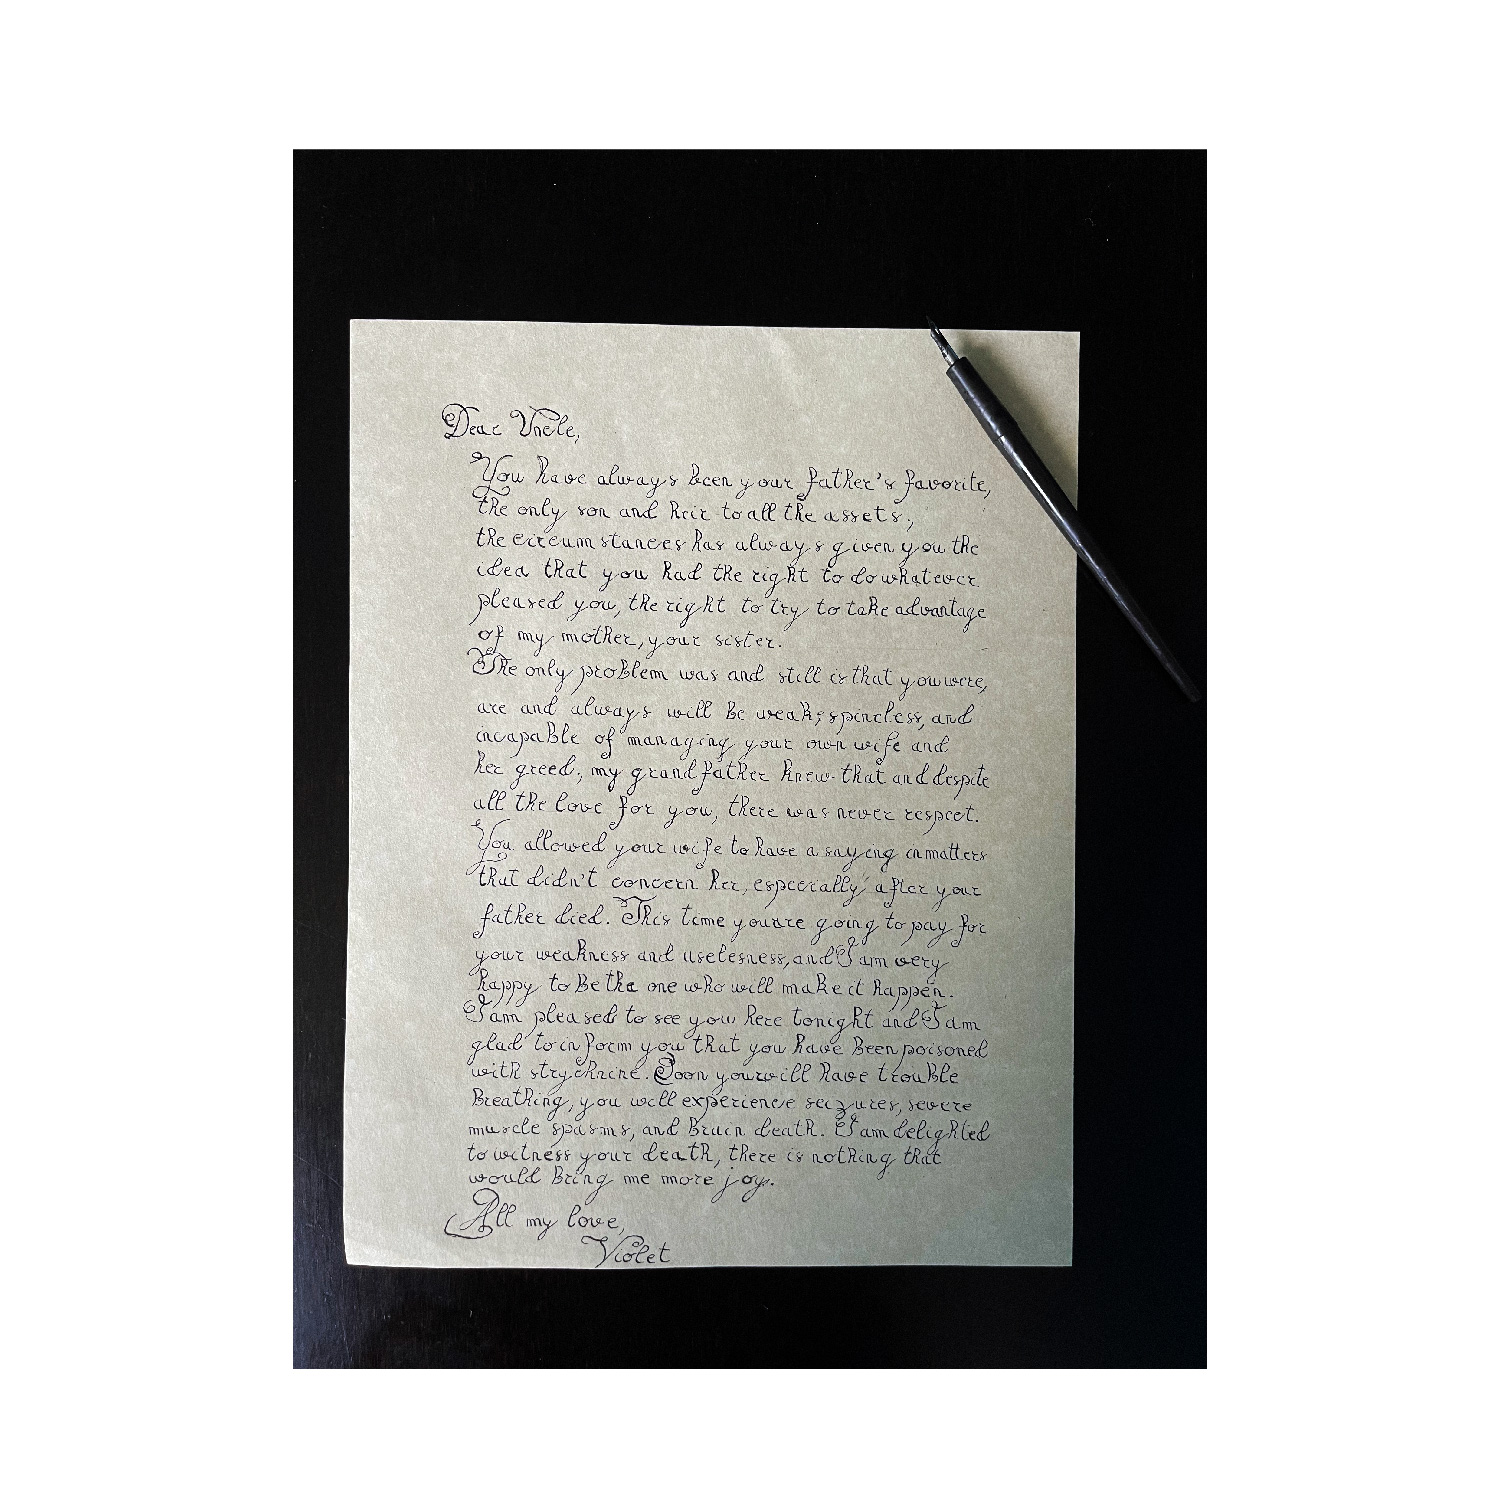 Dear Uncle,
You have always been your father's favorite,
the only son and heir to all the assets,
the circumstances has always given you the
idea that you had the right to do whatever
pleased you, the right to try to take advantage
of my mother, your sister.
The only problem was and still is that you were,
are and always will be weak, spineless, and
incapable of managing your own wife and
her greed, my grandfather knew that and despite
all the love for you, there was never respect.
You allowed your wife to have a saying in matters
that didn't concern her, especially after your
father died. This time you are going to pay for
your weakness and uselesness, and I am very
happy to be the one who will make it happen.
I am pleased to see you here tonight and I am
glad to inform you that you have been poisoned
with strychnine. Soon you will have trouble
breathing, you will experience seizures, severe
muscle spasms, and brain death. I am delighted
to witness your death, there is nothing that
would bring me more joy.
All my love,
Violet